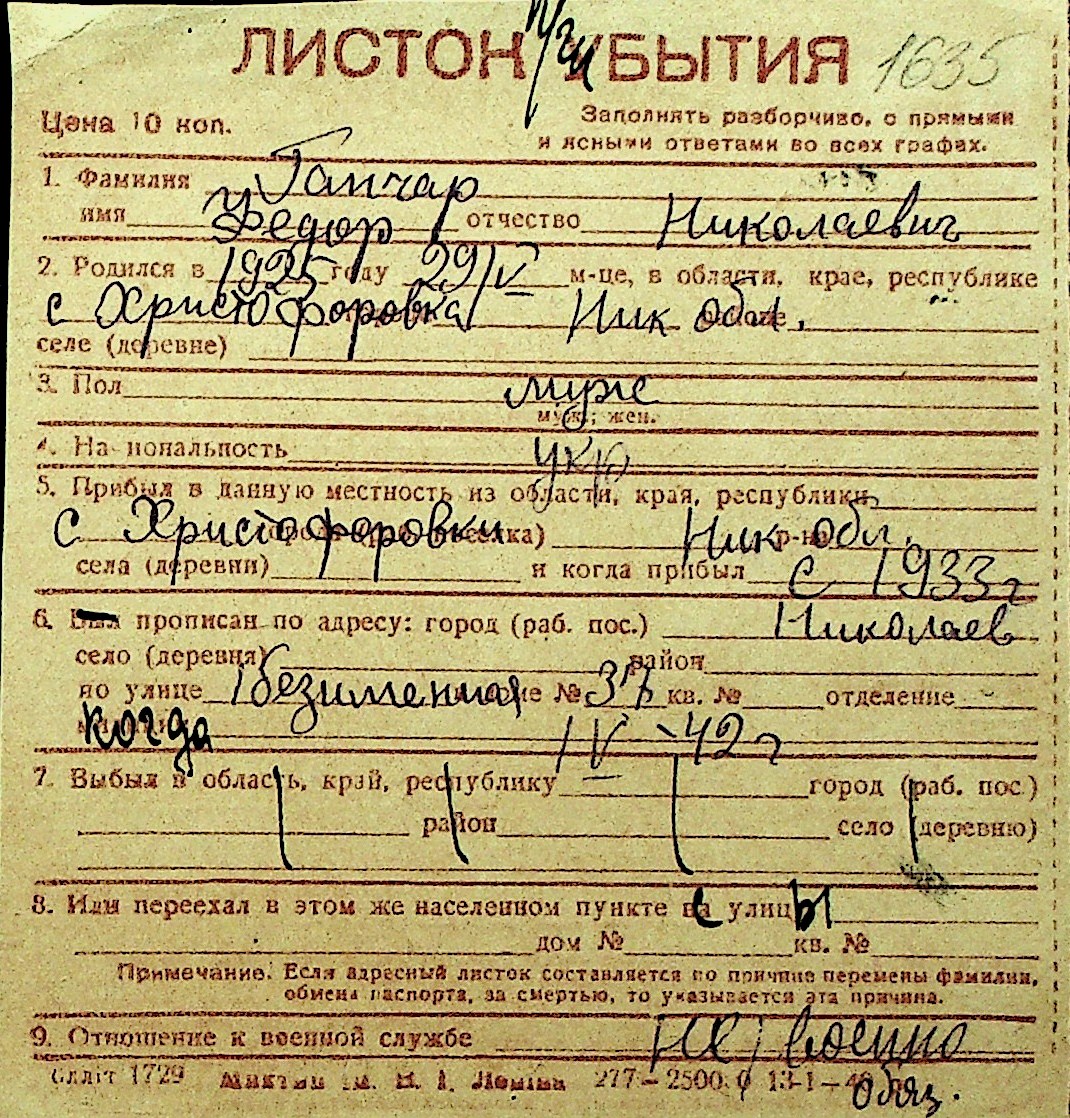 ЛИСТОК УБЫТИЯ 1635
Цена 10 коп.
Заполнять разборчиво, с прямыми
и ясными ответами во всех графах.
1. Фамилия Гапчар
имя Федор отчество Николаевич
2. Родился в 1925 году 29/V м-це, в области, крае, республике
с Христофоровка Ник обл.
селе (деревне)
3. Пол муж
муж.; жен.
4. Национальность укр
5. Прибыл в данную местность из области, края, республики
с Христофоровки Ник обл.
села (деревни) и когда прибыл с 1933 г
6. Был прописан по адресу: город (раб. пос.) Николаев
село (деревня) район
по улице Безименная № 37 кв. № отделение
когда IV-42 г
7. Выбыл в область, край, республику город (раб. пос.)
район село (деревню)
8. Или переехал в этом же населенном пункте с улицы
дом № кв. №
Примечание. Если адресный листок составляется по причине перемены фамилии,
обмена паспорта, за смертью, то указывается эта причина.
9. Отношение к военной службе не военно
обяз.
1729 277—2500 13-1-